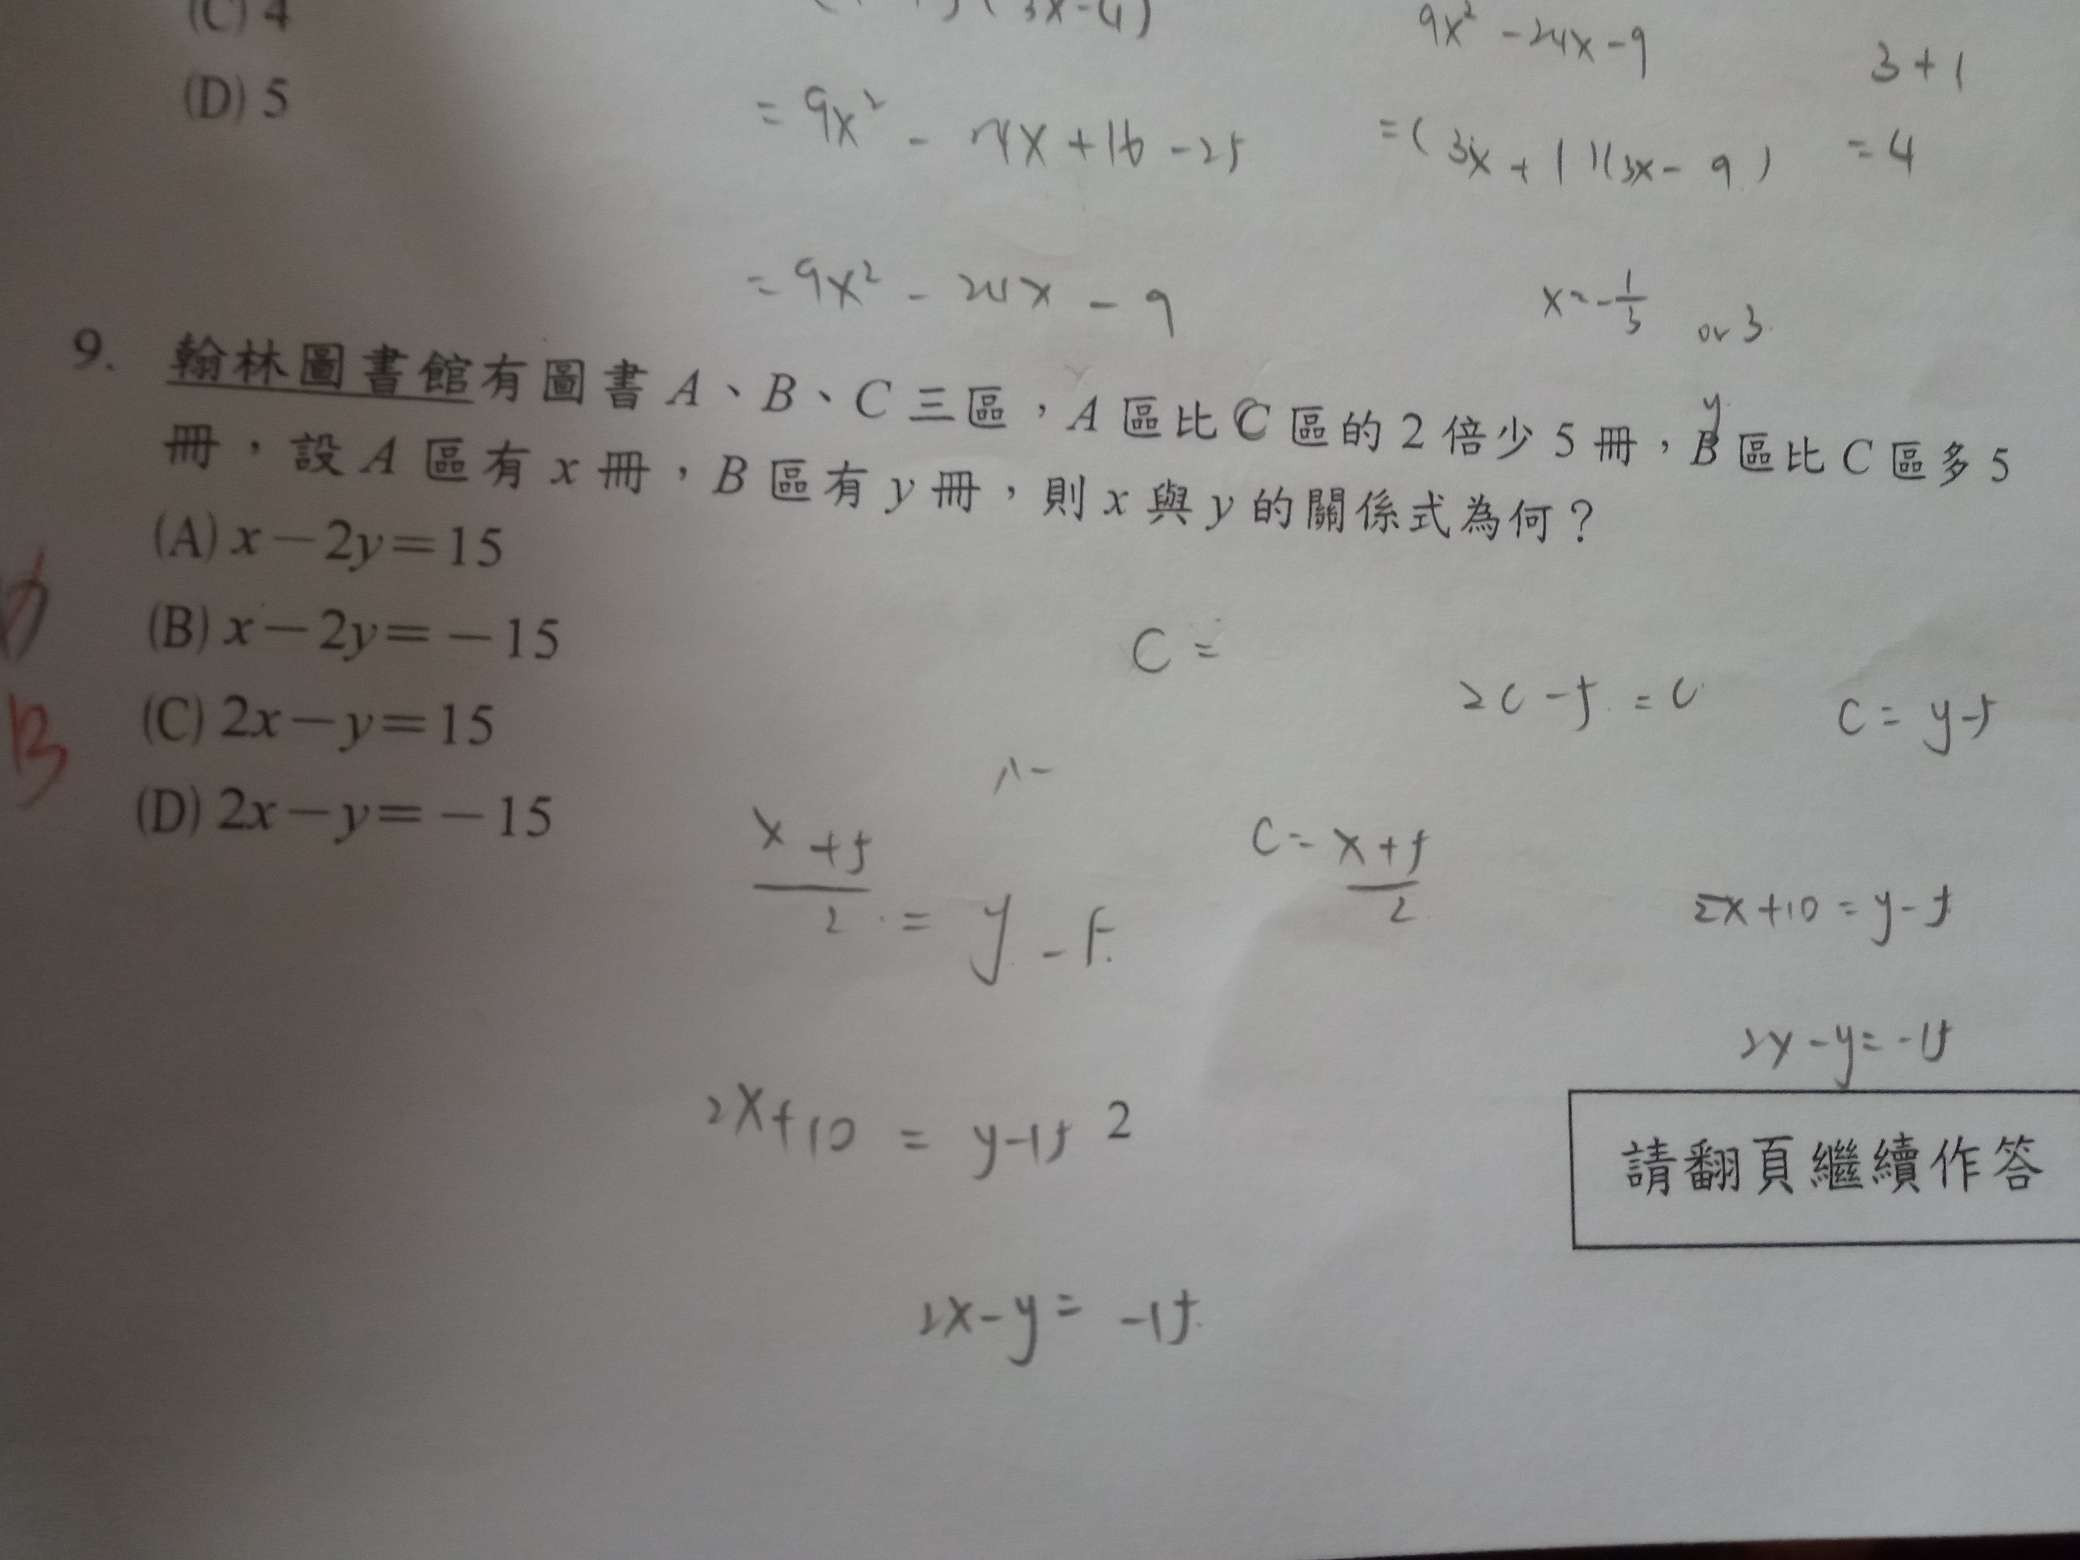 (C) 4
3x-4)
9x² - 24x - 9
3 + 1
(D) 5
= 9x² - 24x + 16 - 25
= (3x + 1)(3x - 9)
= 4
= 9x² - 24x - 9
x = -1/3 or 3
9. 翰林圖書館有圖書A、B、C三區，A區比C區的2倍少5冊，B區比C區多5
y
冊，設A區有x冊，B區有y冊，則x與y的關係式為何？
(A) x－2y＝15
(B) x－2y＝－15
(C) 2x－y＝15
(D) 2x－y＝－15
B
C =
2C - 5 = C
C = y-5
(x+5)/2 = y - 5
C = (x+5)/2
2x+10 = y-5
2x-y=-15
2x+10 = y-15
2
2x-y= -15
請翻頁繼續作答